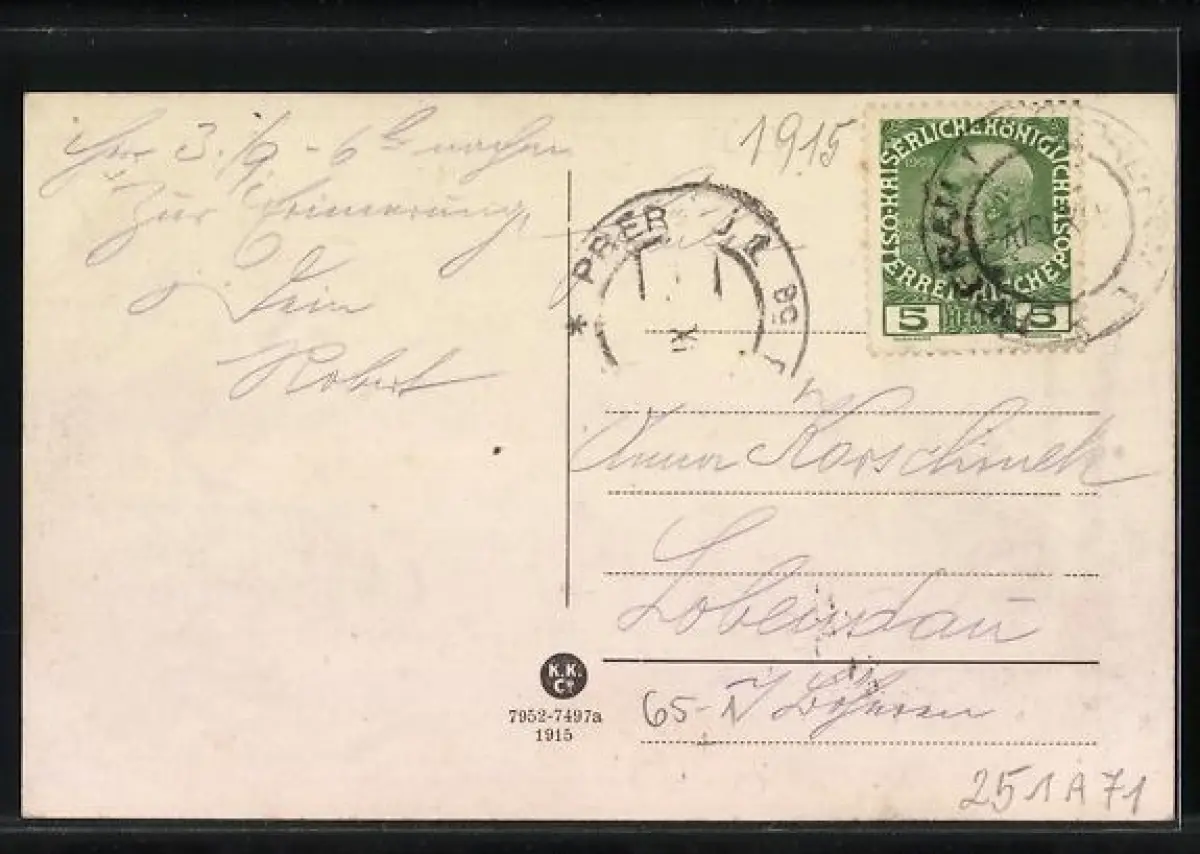 3./9 - 6 h
Zur Erinnerung,
Dein
Robert
1915
KAISERLICHEKÖNIGLICHEÖSTERREICHISCHEPOST
5 HELLER 5
* PRER
Anna Korschinek
Lobendau
i/ Böhmen
65-N
K.K.
Co
7952-7497a
1915
251A71